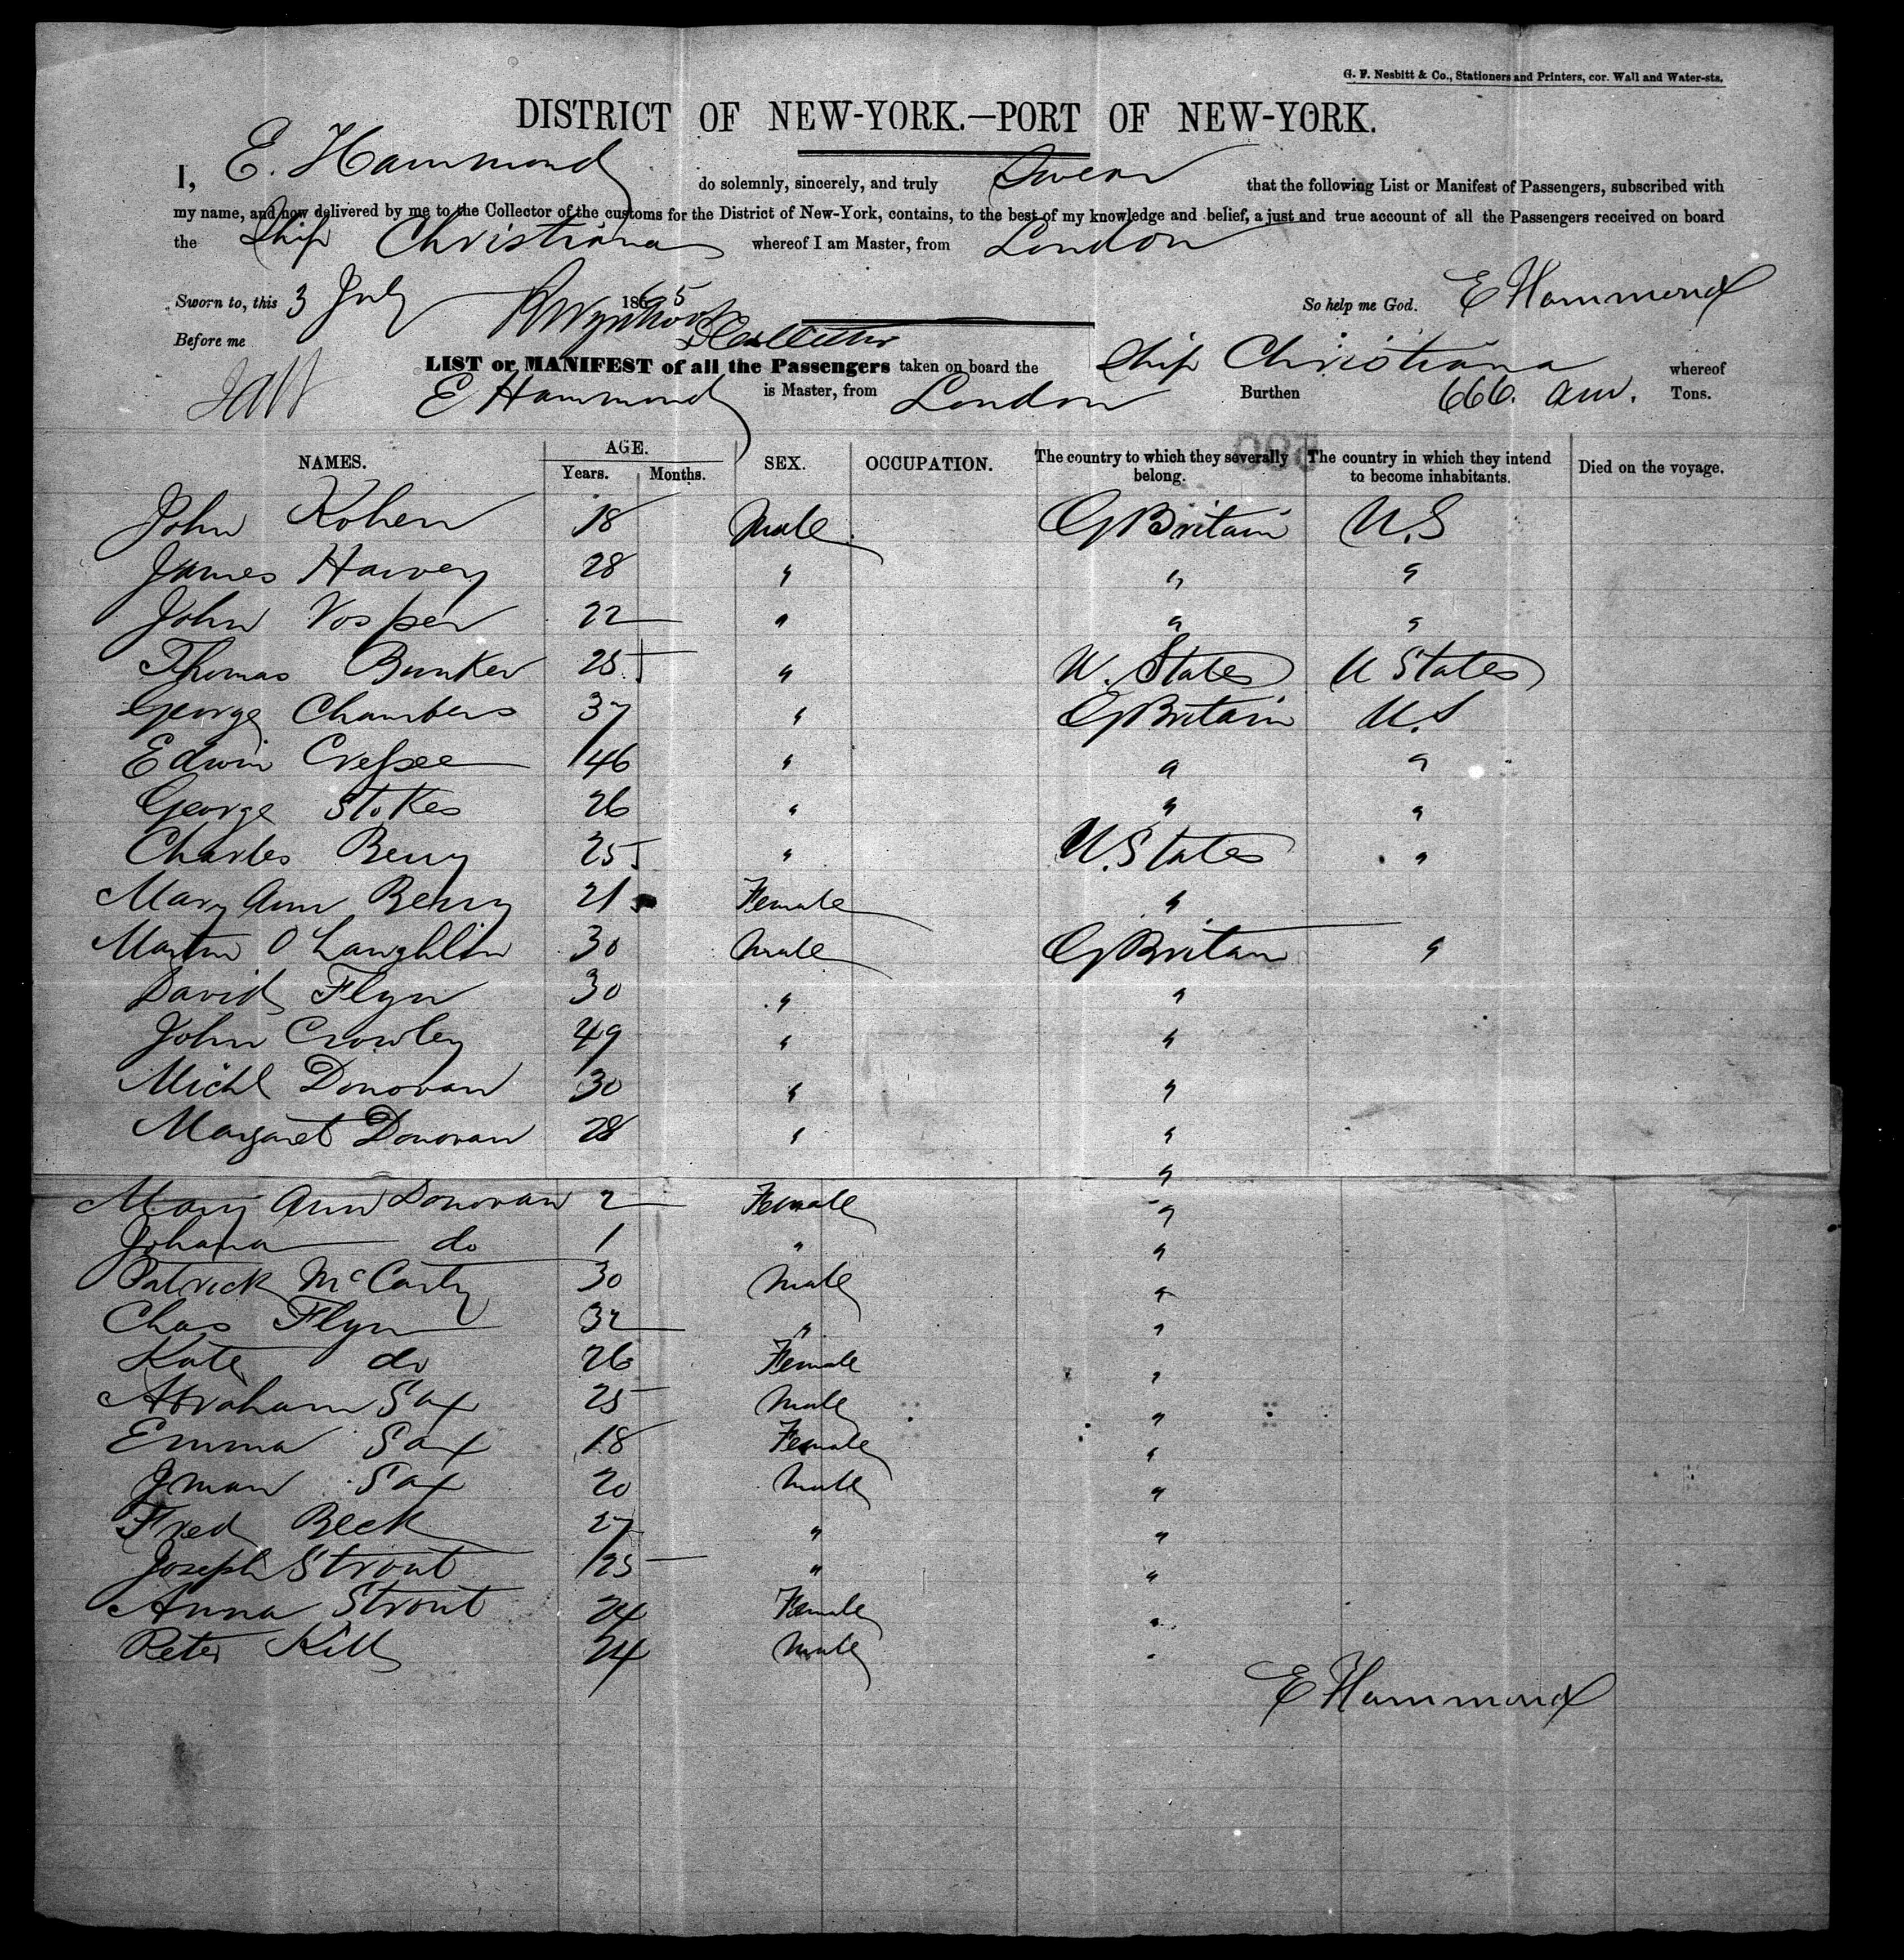 G. F. Nesbitt & Co., Stationers and Printers, cor. Wall and Water-sts.
DISTRICT OF NEW-YORK.—PORT OF NEW-YORK.
I, E. Hammond do solemnly, sincerely, and truly Swear that the following List or Manifest of Passengers, subscribed with
my name, and now delivered by me to the Collector of the customs for the District of New-York, contains, to the best of my knowledge and belief, a just and true account of all the Passengers received on board
the Ship Christiana whereof I am Master, from London
Sworn to, this 3 July 1865 So help me God. E Hammond
Before me
LIST or MANIFEST of all the Passengers taken on board the Ship Christiana whereof
E Hammond is Master, from London Burthen 666. Tons.
NAMES. AGE. Years. Months. SEX. OCCUPATION. The country to which they severally belong. The country in which they intend to become inhabitants. Died on the voyage.
John Kohen 18 Male G Britain U.S
James Harvey 28 " " "
John Vosper 22 " " "
Thomas Bunker 25 " U. States U States
George Chambers 37 " G Britain U.S
Edwin 46 " " "
George Stokes 26 " " "
Charles Berry 25 " U. States "
Mary Ann Berry 21 Female "
Martin O Laughlin 30 Male G Britain "
David Flyn 30 " "
John Crowley 49 " "
Michl Donovan 30 " "
Margaret Donovan 28 " "
"
Mary Ann Donovan 2 Female "
Johana do 1 " "
Patrick McCarty 30 Male "
Chas Flyn 32 " "
Kate do 26 Female "
Abraham Sax 25 Male "
Emma Sax 18 Female "
Sax 20 Male "
Fred Beck 27 " "
Joseph Strout 25 " "
Anna Strout 24 Female "
Peter Kill 24 Male "
E Hammond